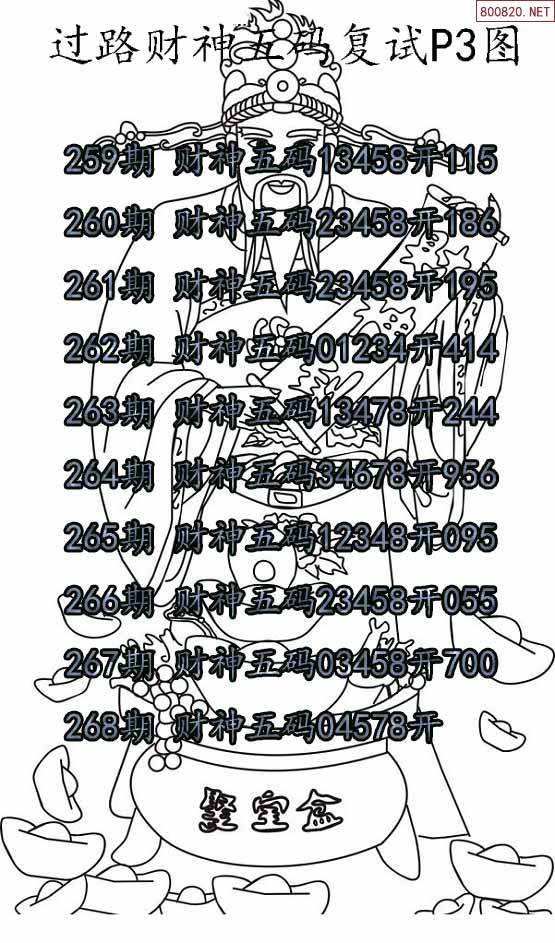 800820.NET
过路财神五码复试P3图
259期 财神五码13458开115
260期 财神五码23458开186
261期 财神五码23458开195
262期 财神五码01234开414
263期 财神五码13478开244
264期 财神五码34678开956
265期 财神五码12348开095
266期 财神五码23458开055
267期 财神五码03458开700
268期 财神五码04578开